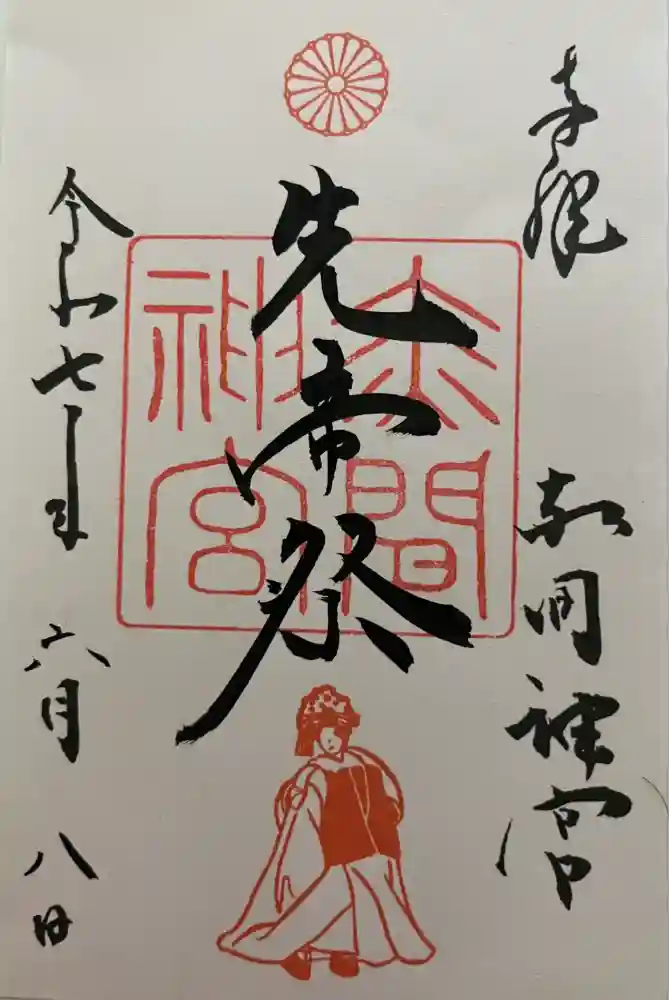 奉拝
赤間神宮
先帝祭
赤間
神宮
令和七年六月八日